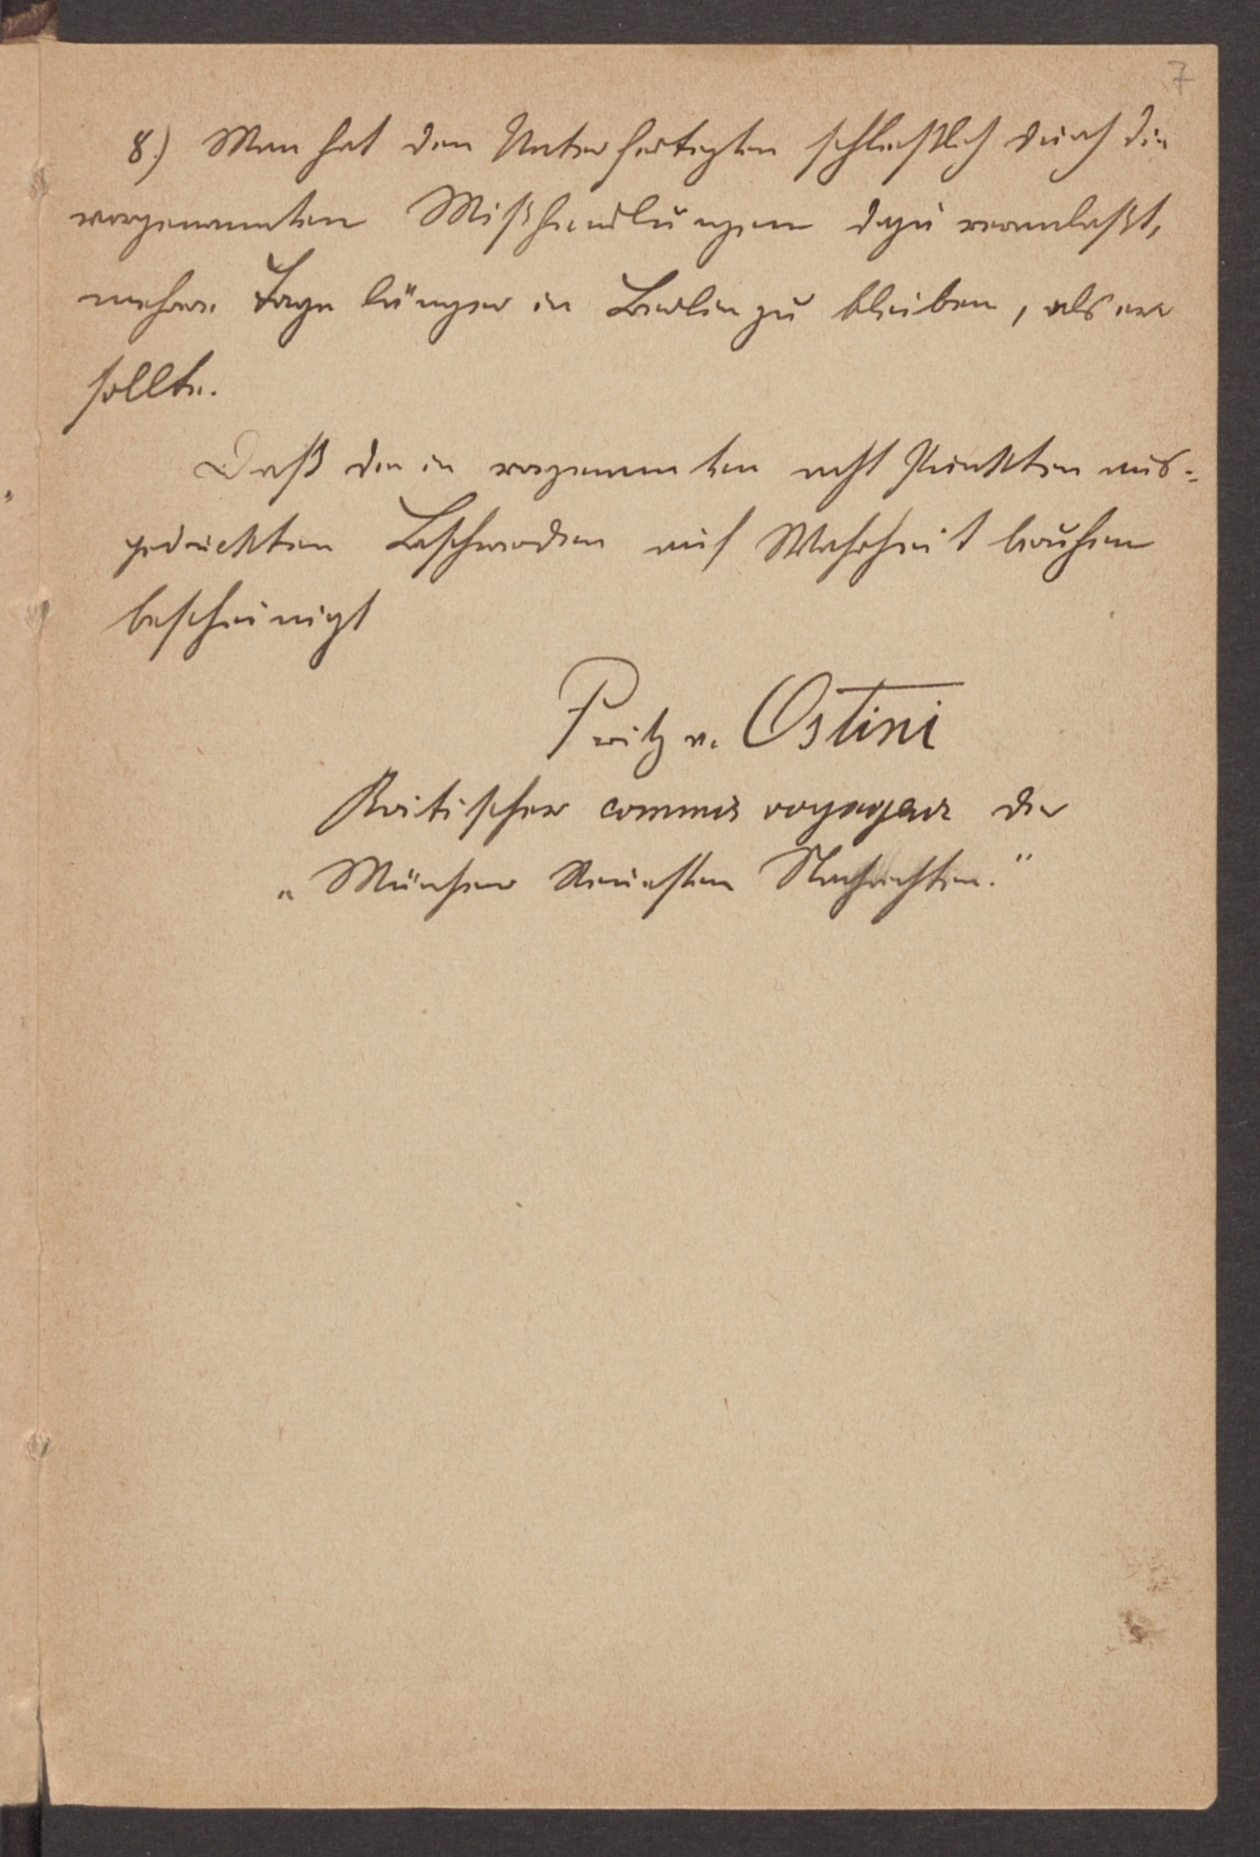 7
8.) Man hat den Unterfertigten schließlich durch die
vorgenannten Mißhandlungen dazu veranlaßt,
mehrere Tage länger in Berlin zu bleiben, als er
sollte.
Daß die in vorgenannten acht Punkten aus-
gedrückten Beschwerden auf Wahrheit beruhen
bescheinigt
Fritz v. Ostini
Kritischer commis voyageur der
„Münchner Neuesten Nachrichten."